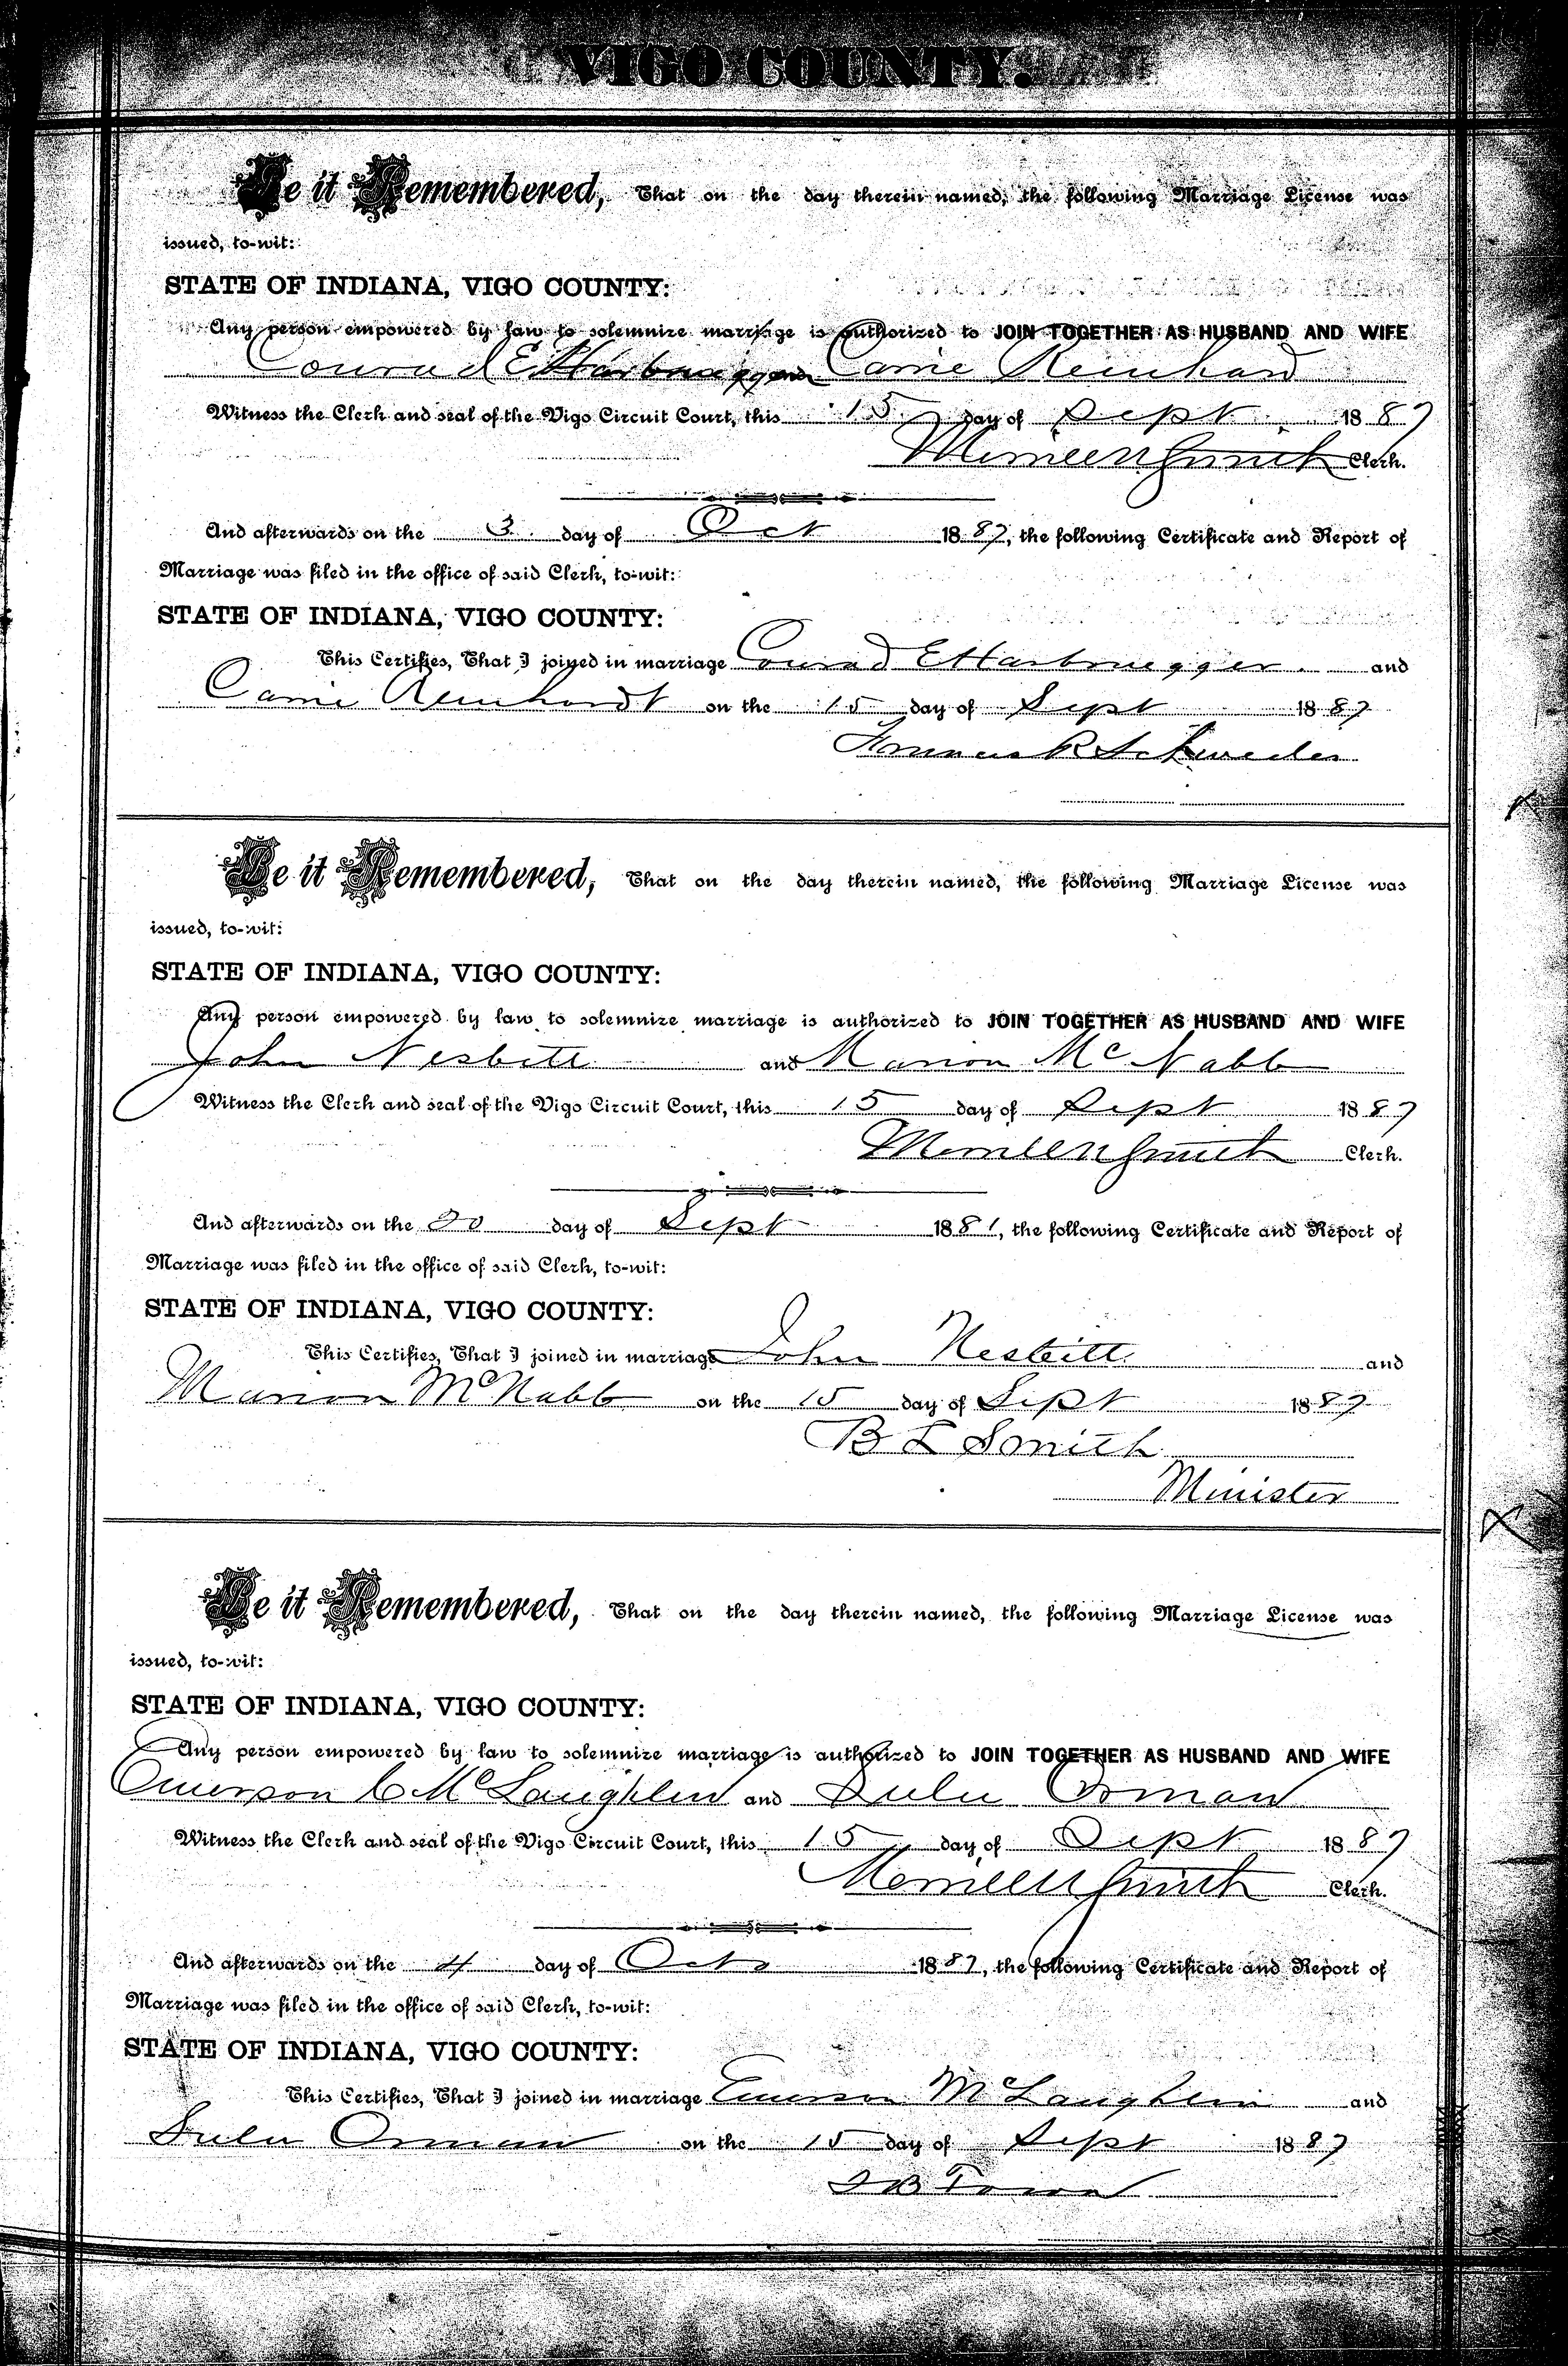 VIGO COUNTY.
Be it Remembered, That on the day therein named, the following Marriage License was
issued, to-wit:
STATE OF INDIANA, VIGO COUNTY:
Any person empowered by law to solemnize marriage is authorized to JOIN TOGETHER AS HUSBAND AND WIFE
Conrad E Harbrugger Carrie Reinhard
Witness the Clerk and seal of the Vigo Circuit Court, this 15 day of Sept 1887
Merrill N Smith Clerk.
And afterwards on the 3 day of Oct 1887, the following Certificate and Report of
Marriage was filed in the office of said Clerk, to-wit:
STATE OF INDIANA, VIGO COUNTY:
This Certifies, That I joined in marriage Conrad E Harbrugger and
Carrie Reinhardt on the 15 day of Sept 1887
Be it Remembered, That on the day therein named, the following Marriage License was
issued, to-wit:
STATE OF INDIANA, VIGO COUNTY:
Any person empowered by law to solemnize marriage is authorized to JOIN TOGETHER AS HUSBAND AND WIFE
John Nesbitt and Marion McNabb
Witness the Clerk and seal of the Vigo Circuit Court, this 15 day of Sept 1887
Merrill N Smith Clerk.
And afterwards on the 20 day of Sept 1881, the following Certificate and Report of
Marriage was filed in the office of said Clerk, to-wit:
STATE OF INDIANA, VIGO COUNTY:
This Certifies, That I joined in marriage John Nesbitt and
Marion McNabb on the 15 day of Sept 1887
B L Smith
Minister
Be it Remembered, That on the day therein named, the following Marriage License was
issued, to-wit:
STATE OF INDIANA, VIGO COUNTY:
Any person empowered by law to solemnize marriage is authorized to JOIN TOGETHER AS HUSBAND AND WIFE
Emerson C McLaughlin and Lulu Orman
Witness the Clerk and seal of the Vigo Circuit Court, this 15 day of Sept 1887
Merrill N Smith Clerk.
And afterwards on the 4 day of Oct 1887, the following Certificate and Report of
Marriage was filed in the office of said Clerk, to-wit:
STATE OF INDIANA, VIGO COUNTY:
This Certifies, That I joined in marriage Emerson McLaughlin and
Lulu Orman on the 15 day of Sept 1887